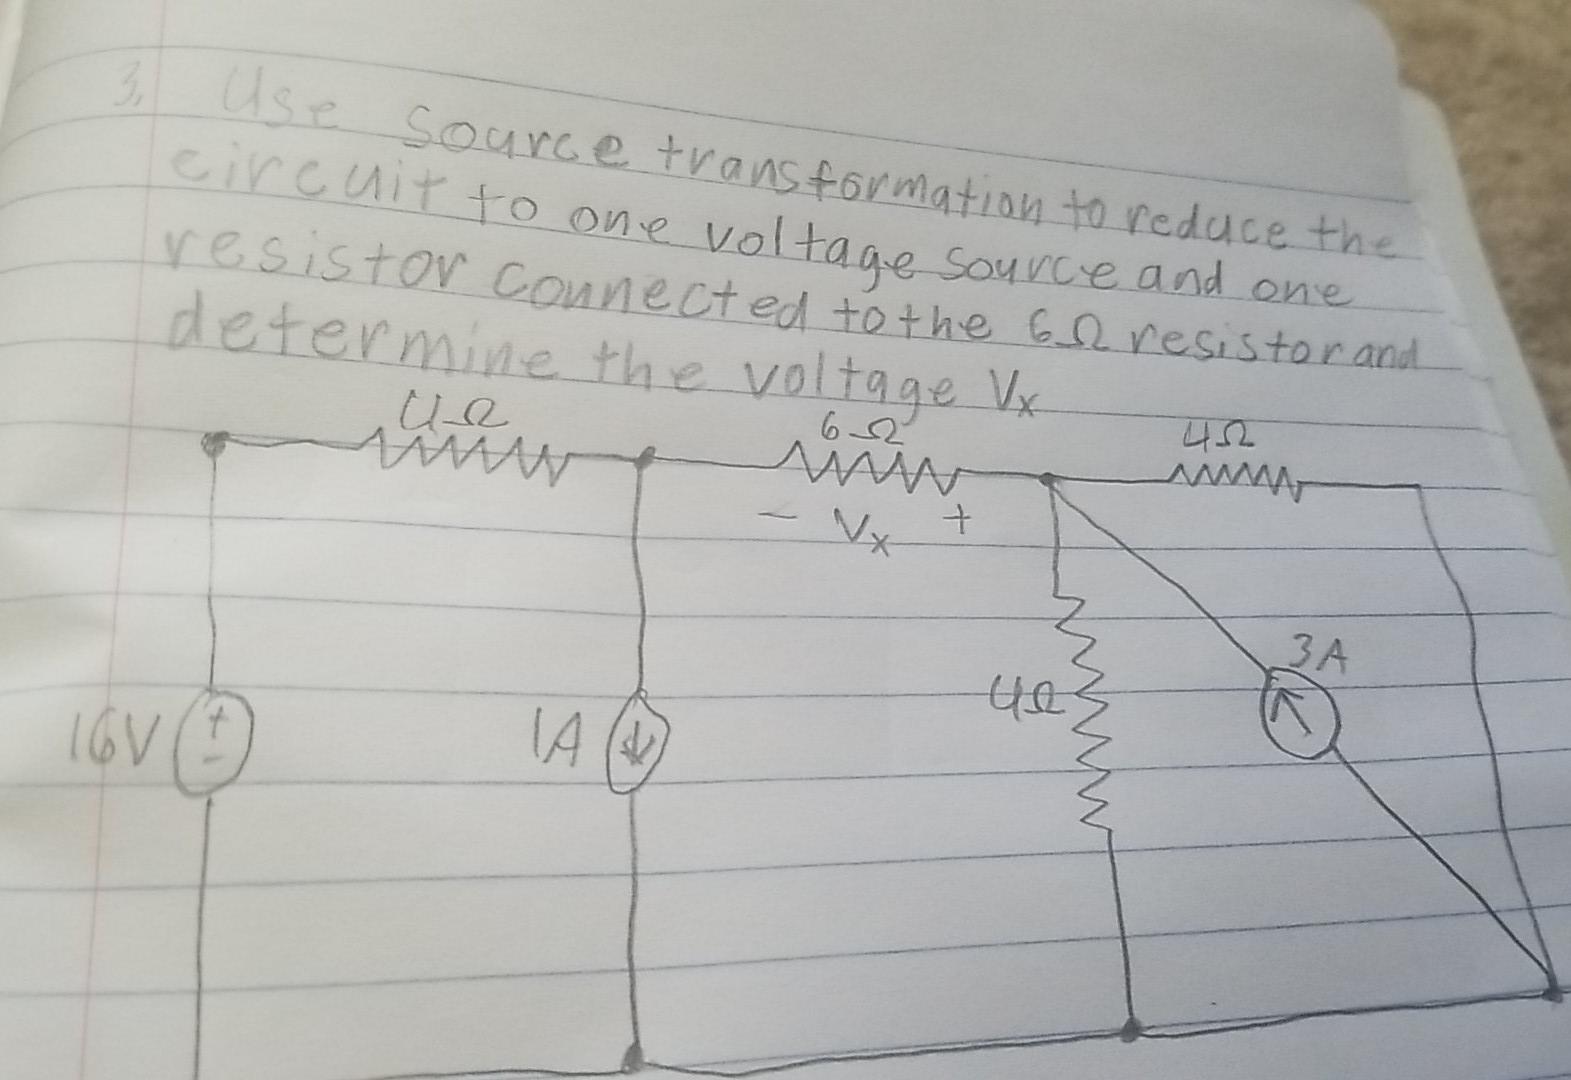 3. Use source transformation to reduce the
circuit to one voltage source and one
resistor connected to the 6Ω resistor and
determine the voltage Vx
4Ω
6Ω
4Ω
- Vx +
3A
4Ω
16V
+
-
1A